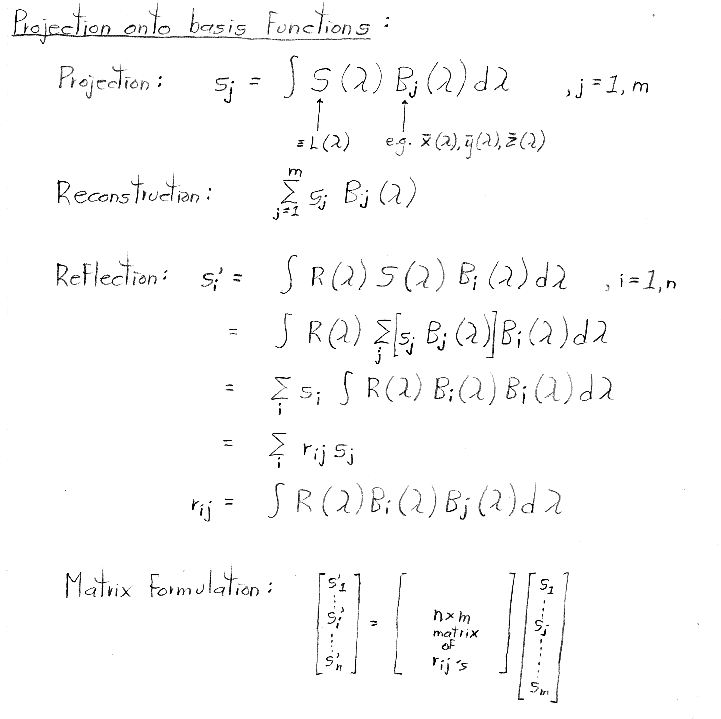 Projection onto basis Functions :
Projection : s_j = ∫ S(λ) B_j(λ) dλ , j = 1, m
≡ L(λ) e.g. x̄(λ), ȳ(λ), z̄(λ)
Reconstruction : ∑_{j=1}^{m} s_j B_j(λ)
Reflection : s_i' = ∫ R(λ) S(λ) B_i(λ) dλ , i = 1, n
= ∫ R(λ) ∑_j [s_j B_j(λ)] B_i(λ) dλ
= ∑_i s_i ∫ R(λ) B_i(λ) B_i(λ) dλ
= ∑_i r_ij s_j
r_ij = ∫ R(λ) B_i(λ) B_j(λ) dλ
Matrix Formulation : [s'_1 ... s_i' ... s'_n] = [n×m matrix of r_ij's] [s_1 ... s_j ... s_m]